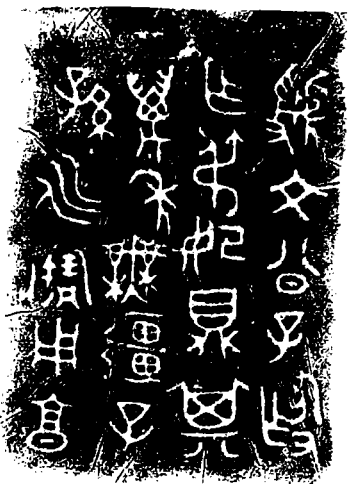 虢文公子𣪘
乍弔妃鼎其
萬年無疆子
孫永寶用享